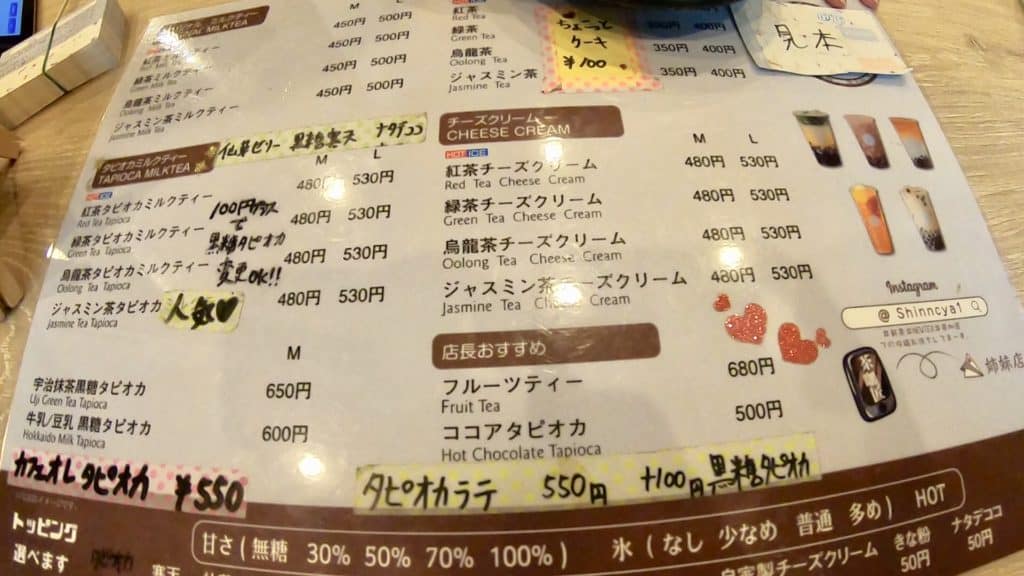 ROYAL MILKTEA
450円 500円
紅茶ミルクティー
450円 500円
緑茶ミルクティー
Green Milk Tea
450円 500円
烏龍茶ミルクティー
Oolong Milk Tea
450円 500円
ジャスミン茶ミルクティー
Jasmine Milk Tea
仙草ゼリー 黒糖寒天 ナタデココ
タピオカミルクティー
TAPIOCA MILKTEA
M L
HOT ICE
紅茶タピオカミルクティー 480円 530円
Red Tea Tapioca
緑茶タピオカミルクティー 480円 530円
Green Tea Tapioca
烏龍茶タピオカミルクティー 480円 530円
Oolong Tea Tapioca
ジャスミン茶タピオカ 人気♥ 480円 530円
Jasmine Tea Tapioca
100円プラス
で
黒糖タピオカ
変更OK!!
M
宇治抹茶黒糖タピオカ 650円
Uji Green Tea Tapioca
牛乳/豆乳 黒糖タピオカ 600円
Hokkaido Milk Tapioca
カフェオレタピオカ ¥550
紅茶
Red Tea
緑茶
Green Tea
烏龍茶 350円 400円
Oolong Tea
ジャスミン茶 350円 400円
Jasmine Tea
ちょこっと
ケーキ
¥100
見本
チーズクリーム
CHEESE CREAM
M L
HOT ICE
紅茶チーズクリーム 480円 530円
Red Tea Cheese Cream
緑茶チーズクリーム 480円 530円
Green Tea Cheese Cream
烏龍茶チーズクリーム 480円 530円
Oolong Tea Cheese Cream
ジャスミン茶チーズクリーム 480円 530円
Jasmine Tea Cheese Cream
店長おすすめ
フルーツティー 680円
Fruit Tea
ココアタピオカ 500円
Hot Chocolate Tapioca
タピオカラテ 550円 +100円黒糖タピオカ
Instagram
@ Shinncya1
姉妹店
トッピング
選べます
甘さ ( 無糖 30% 50% 70% 100% ) 氷 ( なし 少なめ 普通 多め ) HOT
タピオカ 寒天
自家製チーズクリーム きな粉 ナタデココ
50円 50円